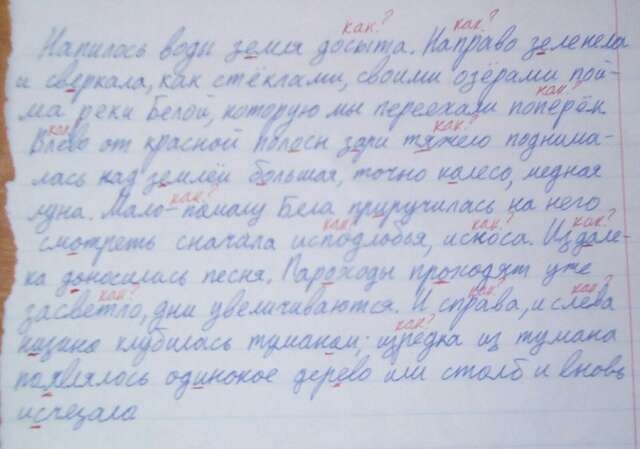 как? как?
Напилось воды земля досыта. Направо зеленела
и сверкала, как стёклами, своими озёрами пой-
как?
ма реки Белой, которую мы переехали поперёк
как? как?
Влево от красной полосы зари тяжело поднима-
лась над землёй большая, точно колесо, медная
как?
луна. Мало-помалу Бела приручилась на него
как? как? как?
смотреть сначала исподлобья, искоса. Издале-
ка доносилась песня. Пароходы проходят уже
как? как? как?
засветло, дни увеличиваются. И справа, и слева
как?
низина клубилась туманом; изредка из тумана
появлялось одинокое дерево или столб и вновь
исчезала